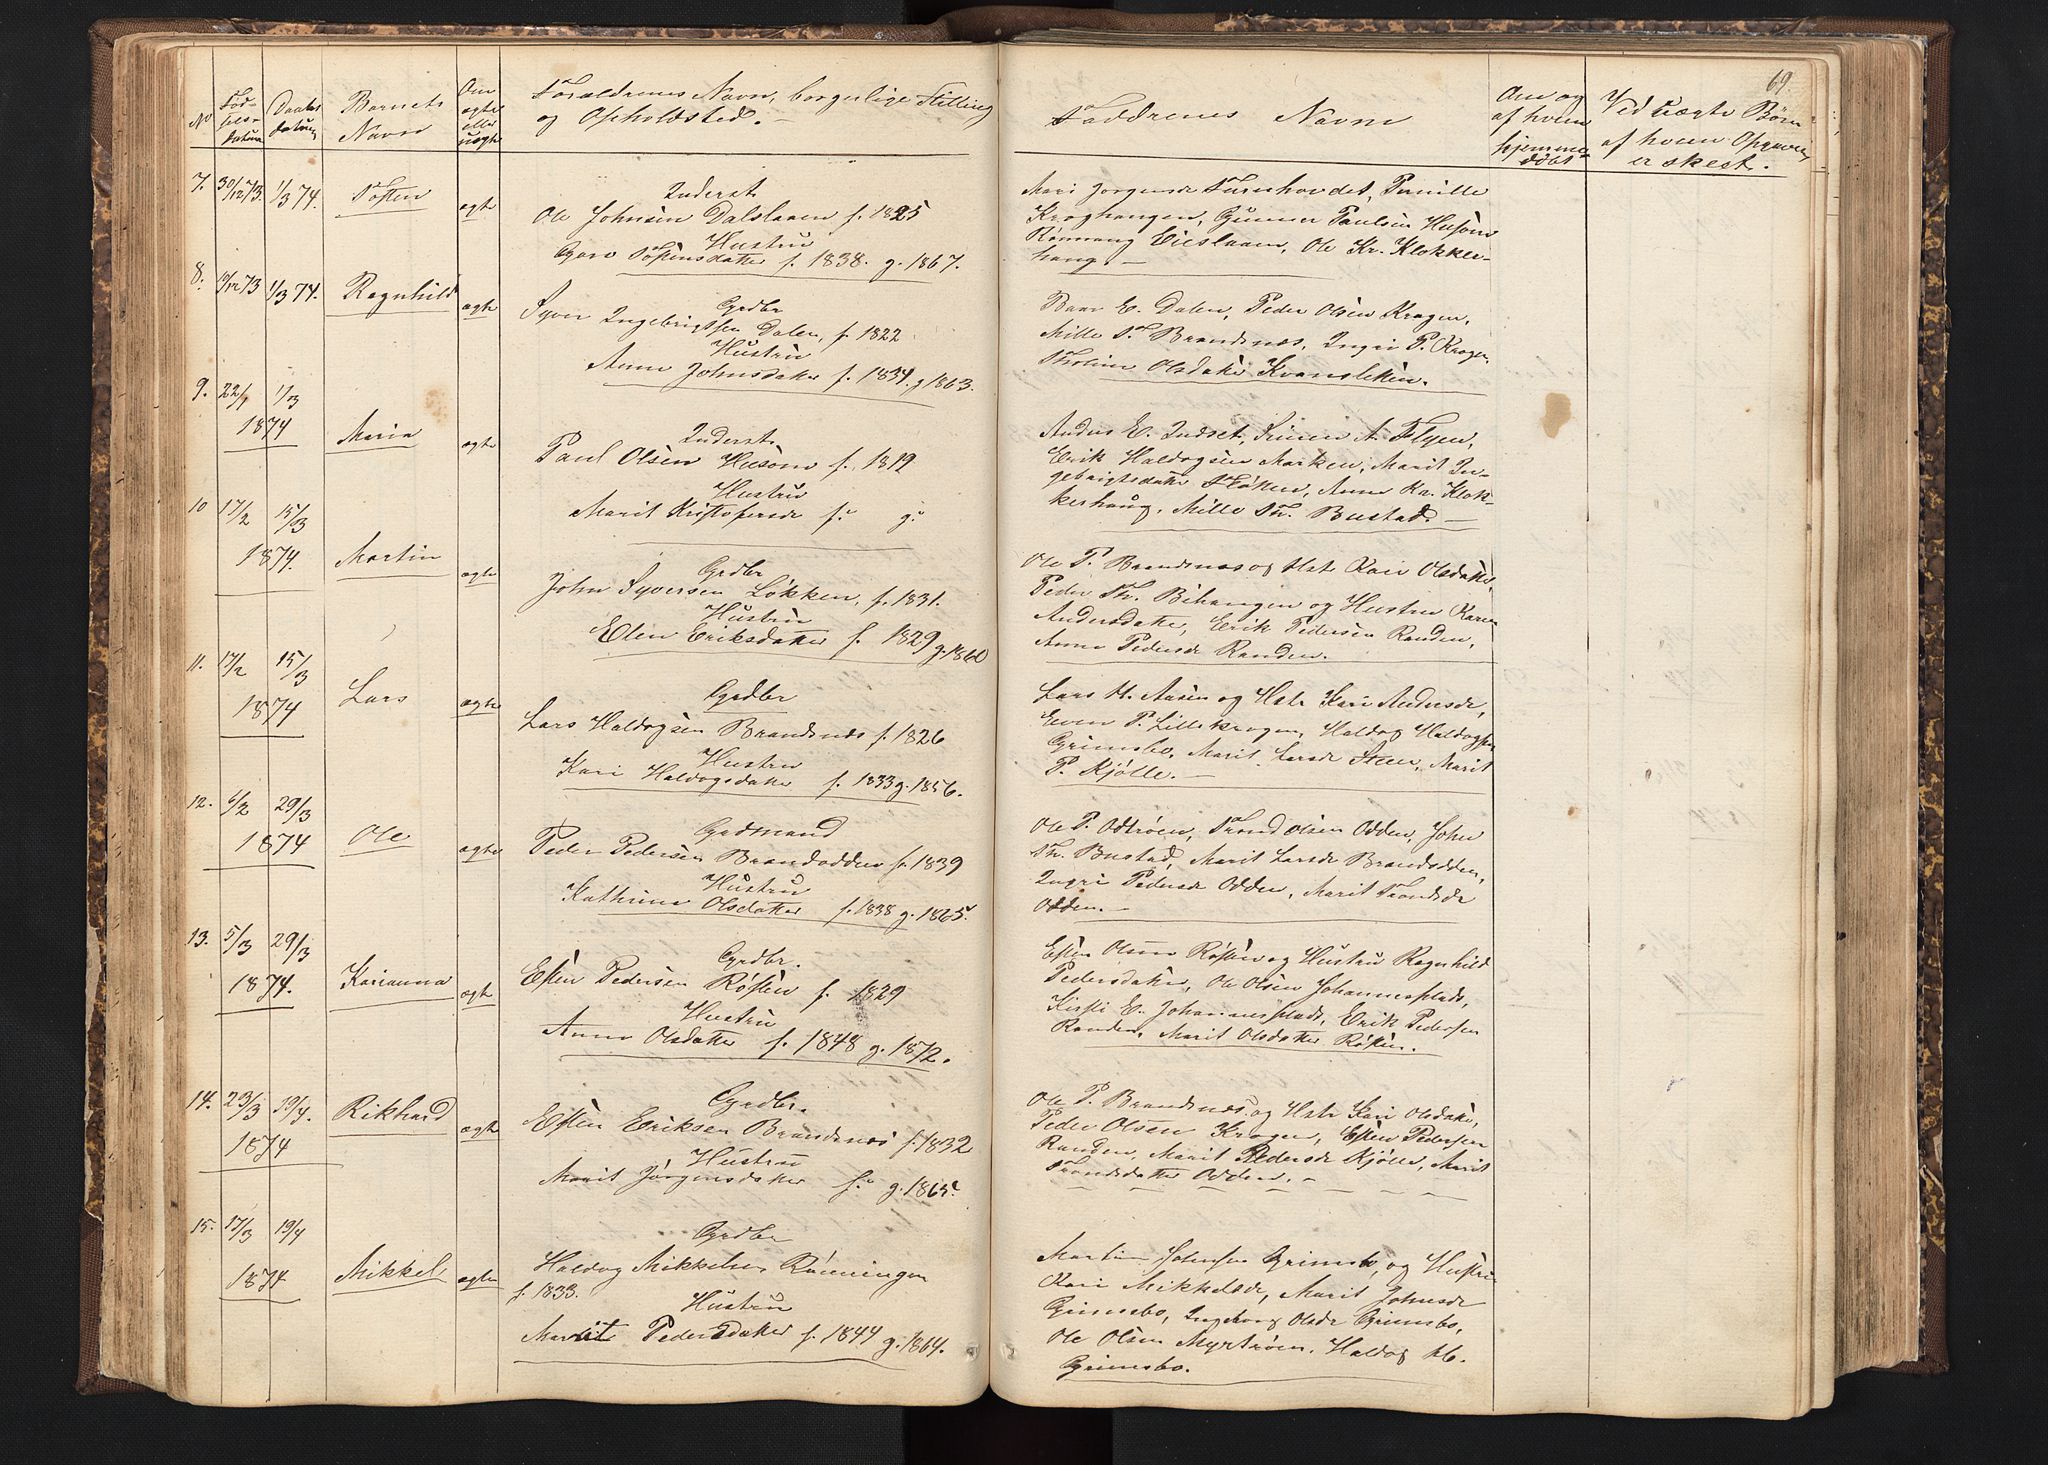 69.
No
Fød-
sels-
datum
Daabs
datum
Barnets
Navn
Om
ægte
eller
uægte
Forældrenes Navn, borgerlige Stilling
og Opholdsted. -
Faddrenes Navn
Om og
af hvem
hjemme-
døbt
Ved uægte Børn
af hvem Opgaven
er skeet.
7. 30/12 73. 1/3 74. Østen ægte
Inderst
Ole Johnsen Dalslaaen f. 1825
Hustru
Goro Estensdatter f. 1838. g. 1867.
Mari Jorgensdr Turnhovdet, Pernille
Kroghaugen, Gunner Paulsen Husom
Rønnaug Eieslaaen, Ole Kr. Klokker-
haug. -
8. 13/12 73 1/3 74. Ragnhild ægte
Grdbr
Syver Ingebrigtsen Dalen, f. 1822
Hustru
Anne Johnsdatter f. 1834. g 1863.
E. Dalen, Peder Olsen Krogen,
Mille Brandsnes, Ingri P. Krogen
Olsdatter Kvansleken.
9. 22/1 1/3
1874
Maria ægte
Inderst
Paul Olsen Husom f. 1819
Hustru
Marit Kristofersdr f: g:
Anders E. Indset, Simen A. Flyen,
Erik Haldogsen Marken, Marit In-
gebrigtsdatter Støken, Anne Kr. Klok-
kerhaug, Mille Th. Bustad. -
10 17/2 15/3
1874.
Martin ægte
Grdbr
John Syversen Løkken, f. 1831.
Hustru
Elen Eriksdatter f. 1829 g. 1860
Ole P. Brandsnes og Hstr Kari Olsdatter,
Peder Th. Bihaugen og Hustru Karen
Andersdatter, Erik Pedersen Randen,
Anne Pedersdr Randen.
11. 17/2 15/3
1874
Lars ægte
Grdbr
Lars Haldogsen Brandsnes f. 1826
Hustru
Kari Haldogsdatter f. 1833 g. 1856.
Lars H. Aasen og Hstr Kari Andersdr,
Even P. Lillekrogen, Haldog Haldogsen
Grimsbo, Marit Larsdr Steen, Marit
P. Kjølle. -
12. 6/2 29/3
1874
Ole ægte
Grdmand
Peder Pedersen Brandsodden f. 1839
Hustru
Kathrine Olsdatter f. 1838 g. 1865.
Ole P. Odtrøen, Trond Olsen Odden, John
Th. Bustad, Marit Larsdr Brandsodden,
Ingri Pedersdr Odden, Marit Trondsdr
Odden. -
13. 5/3 29/3
1874.
Karianna ægte
Grdbr.
Esten Pedersen Røsten f. 1829
Hustru
Anne Olsdatter f. 1848 g. 1872.
Esten Olsen Røsten og Hustru Ragnhild
Pedersdatter, Ole Olsen Johannesplads,
Kirsti E. Johannesplads, Erik Pedersen
Randen, Marit Olsdatter Røsten.
14. 23/3 19/4.
1874
Rikhard ægte
Grdbr.
Esten Eriksen Brandsnes f. 1832
Hustru
Marit Jørgensdatter f: g. 1865.
Ole P. Brandsnes og Hstr Kari Olsdatter,
Peder Olsen Krogen, Esten Pedersen
Randen, Marit Pedersdr Kjølle, Marit
Trondsdatter Odden. -
15. 17/3 19/4
1874
Mikkel ægte
Grdbr
Haldog Mikkelsen Rønningen
f. 1833.
Hustru
Marit Pedersdatter f. 1844 g. 1864.
Martin Johnsen Grimsbo, og Hustru
Kari Mikkelsdr, Marit Johnsdr
Grimsbo, Ingeborg Olsdr Grimsbo,
Ole Olsen Myrtrøen, Haldog Hb.
Grimsbo.